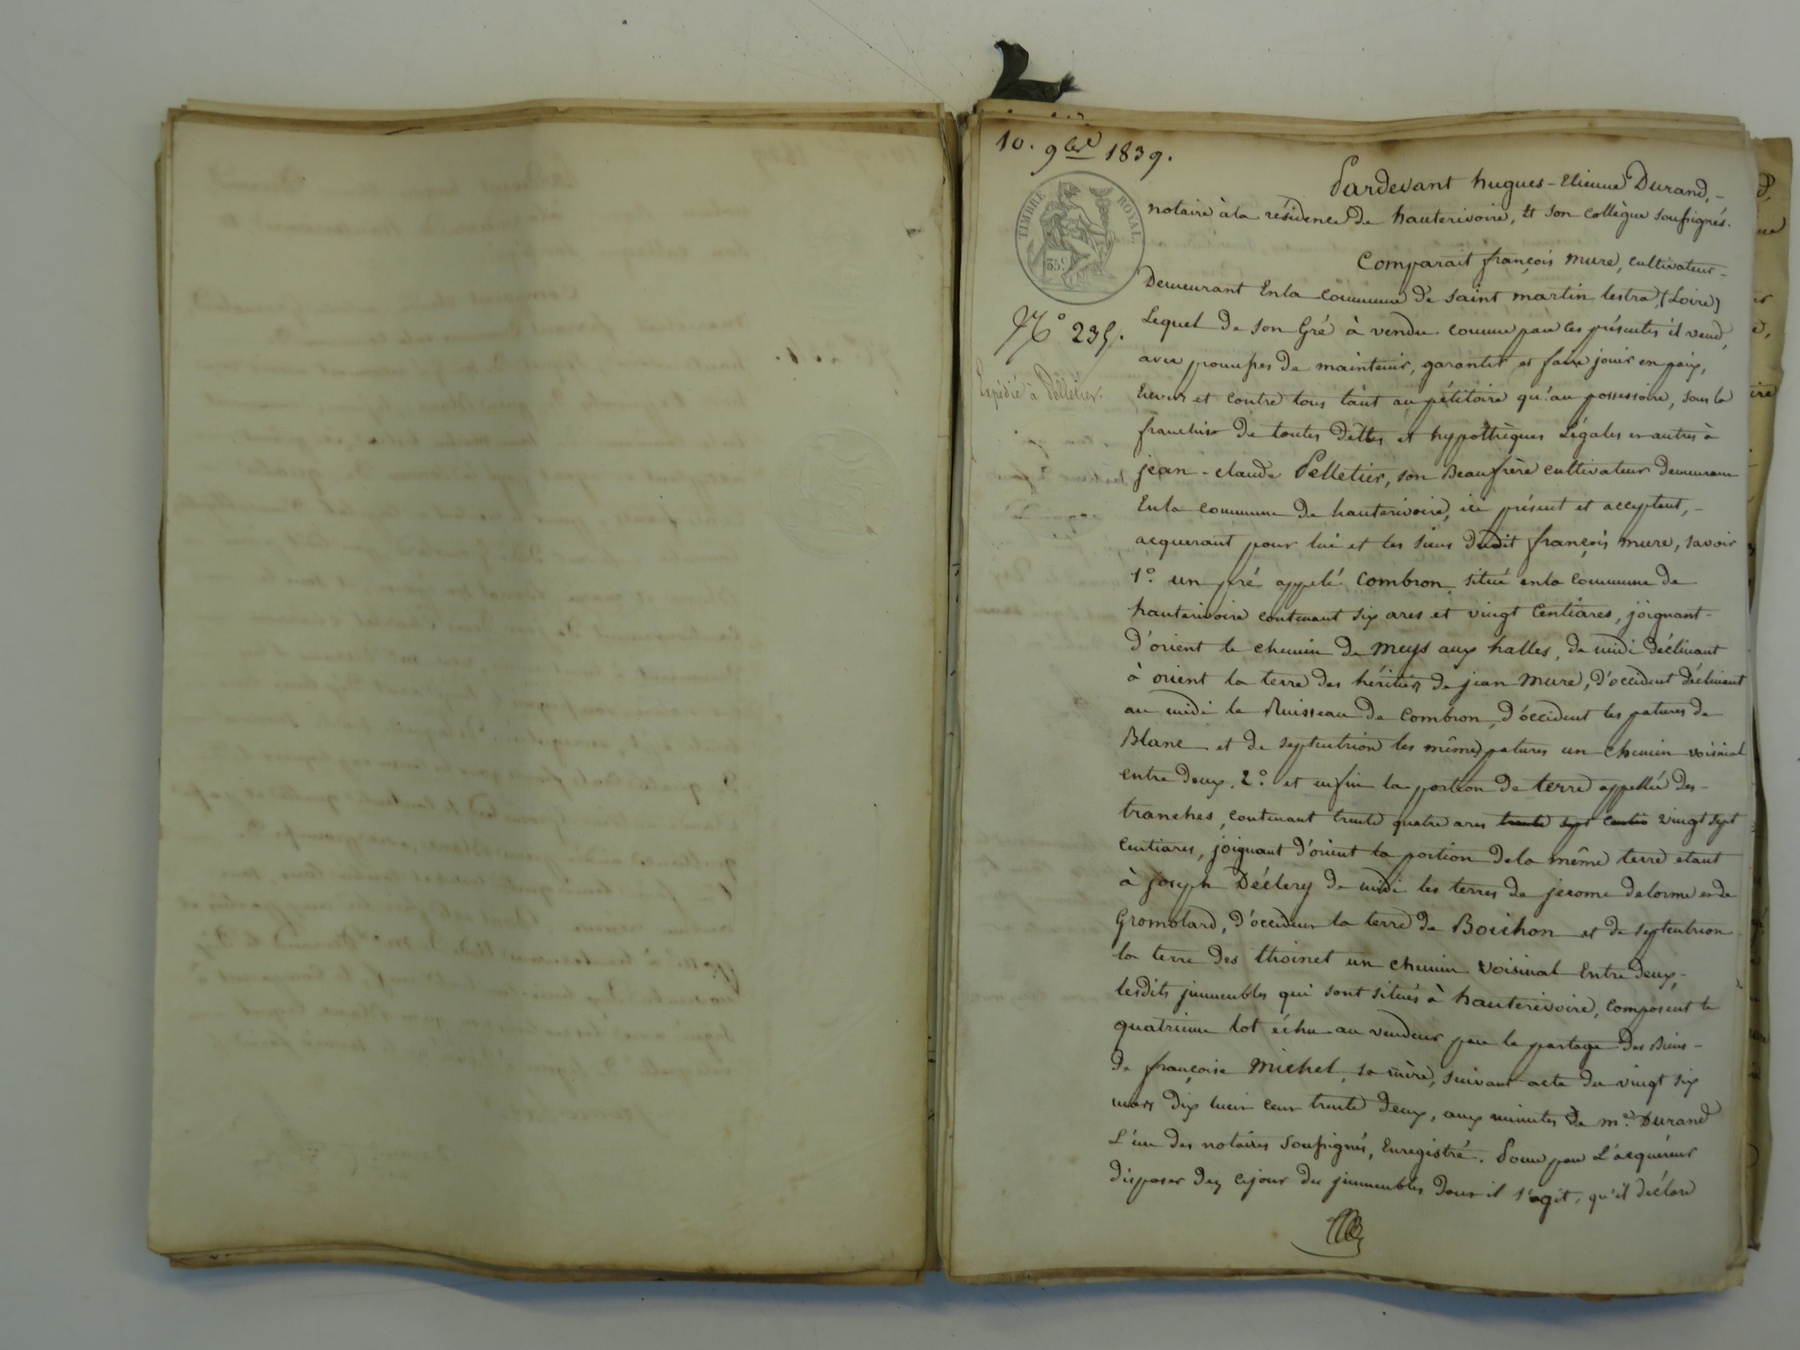 10. 9bre 1839.
TIMBRE ROYAL.
35c
N° 235.
Expédié à Pelletier.
Pardevant hugues-Etienne Durand,-
notaire à la résidence de hauterivoire, et son collègue soussignés.
Comparait françois mure, cultivateur-
Demeurant Enla commune de saint martin lestra, (Loire)
Lequel de son Gré à vendu comme par les présentes il vend,
avec promesses de maintenir, garantir et faire jouir en paix,
Envers et contre tous tant au pétitoire qu'au possessoire, sous la
franchise de toutes dettes et hypothèques Légales et autres à
jean-claude Pelletier, son Beaufrère cultivateur demeurant
Enla commune de hauterivoire, ici présent et acceptant,-
acquerant pour lui et les siens dudit françois mure, savoir
1°. un pré appelé Combron, situé enla commune de
hauterivoire contenant six ares et vingt Centiares, joignant-
d'orient le chemin de Meys aux halles, de midi déclinant
à orient la terre des héritiers de jean Mure, d'occident déclinant
au midi le Ruisseau de Combron, d'occident les patures de
Blanc et de septentrion les mêmes patures un chemin voisinal
entre deux. 2°. et enfin la portion de terre appellée Des-
tranches, contenant trente quatre ares trente sept centia vingt sept
Centiares, joignant d'orient la portion dela même terre etant
à joseph Déclery de midi les terres de jerome delorme et de
Gromolard, d'occident la terre de Boichon et de septentrion
la terre des thoinet un chemin voisinal Entre deux,-
lesdits jmmeubles qui sont situés à hauterivoire, composent le
quatrieme lot échu au vendeur par le partage des Biens-
de françoise Michel, sa mère, suivant acte du vingt six
mars dix huit cent trente deux, aux minutes de me. Durand
L'un des notaires soussignés, Enregistré. Pour par L'acquéreur
disposer dez cejour des jmmeubles dont il s'agit, qu'il déclare